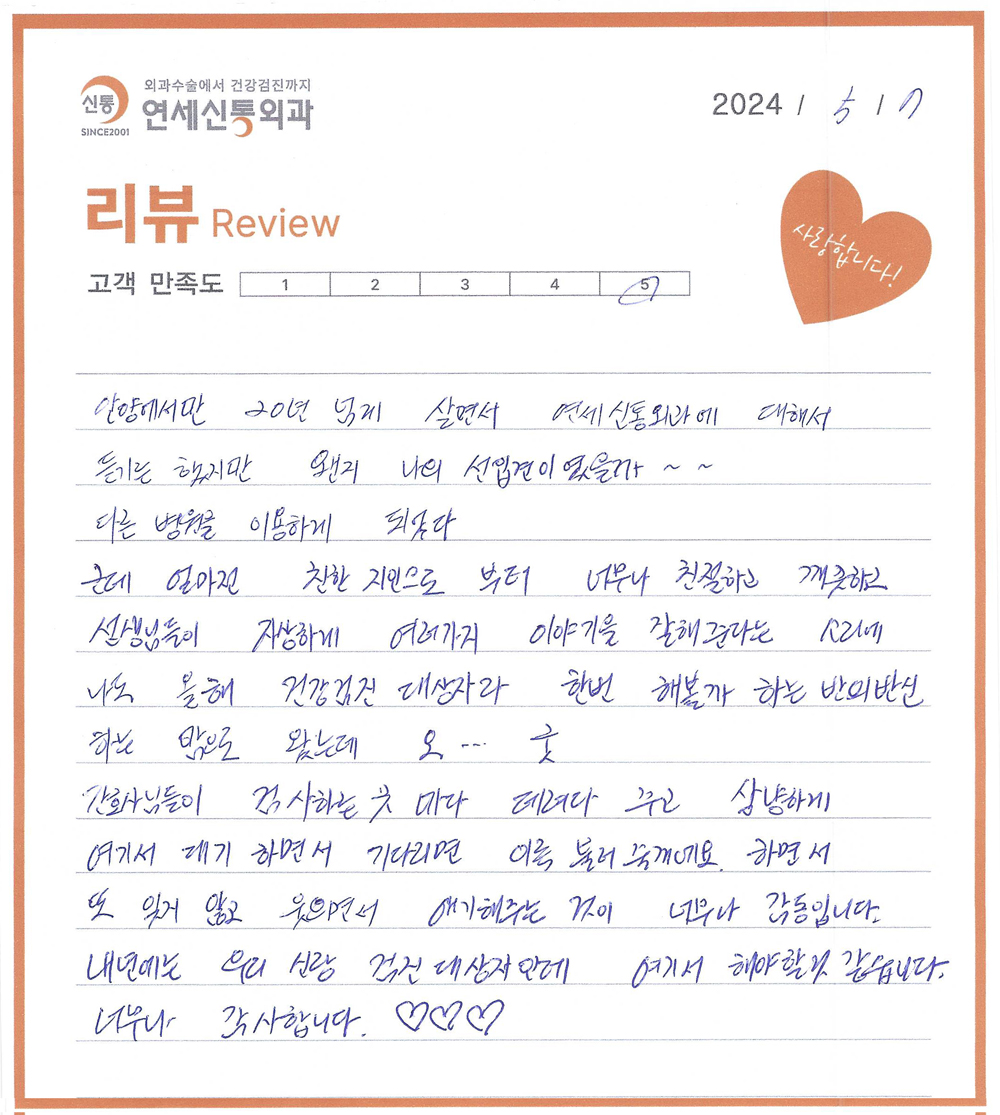 외과수술에서 건강검진까지
신통 연세신통외과
SINCE2001
2024 / 5 / 7
리뷰 Review
사랑합니다!
고객 만족도 1 2 3 4 5
안양에서만 20년 넘게 살면서 연세신통외과에 대해서
듣기는 했지만 왠지 나의 선입견이 였을까 ~ ~
다른 병원을 이용하게 되었다
근데 얼마전 친한 지인으로 부터 너무나 친절하고 깨끗하고
선생님들이 자상하게 여러가지 이야기을 잘해준다는 소리에
나도 올해 건강검진 대상자라 한번 해볼까 하는 반의반신
하는 맘으로 왔는데 오... 굿
간호사님들이 검사하는 곳 마다 데려다 주고 상냥하게
여기서 대기 하면서 기다리면 이름 불러 줄꺼네요. 하면서
또 잊지 않고 웃으면서 얘기해주는 것이 너무나 감동입니다.
내년에는 우리 신랑 검진 대상자인데 여기서 해야할것 같습니다.
너무나 감사합니다. ♡♡♡